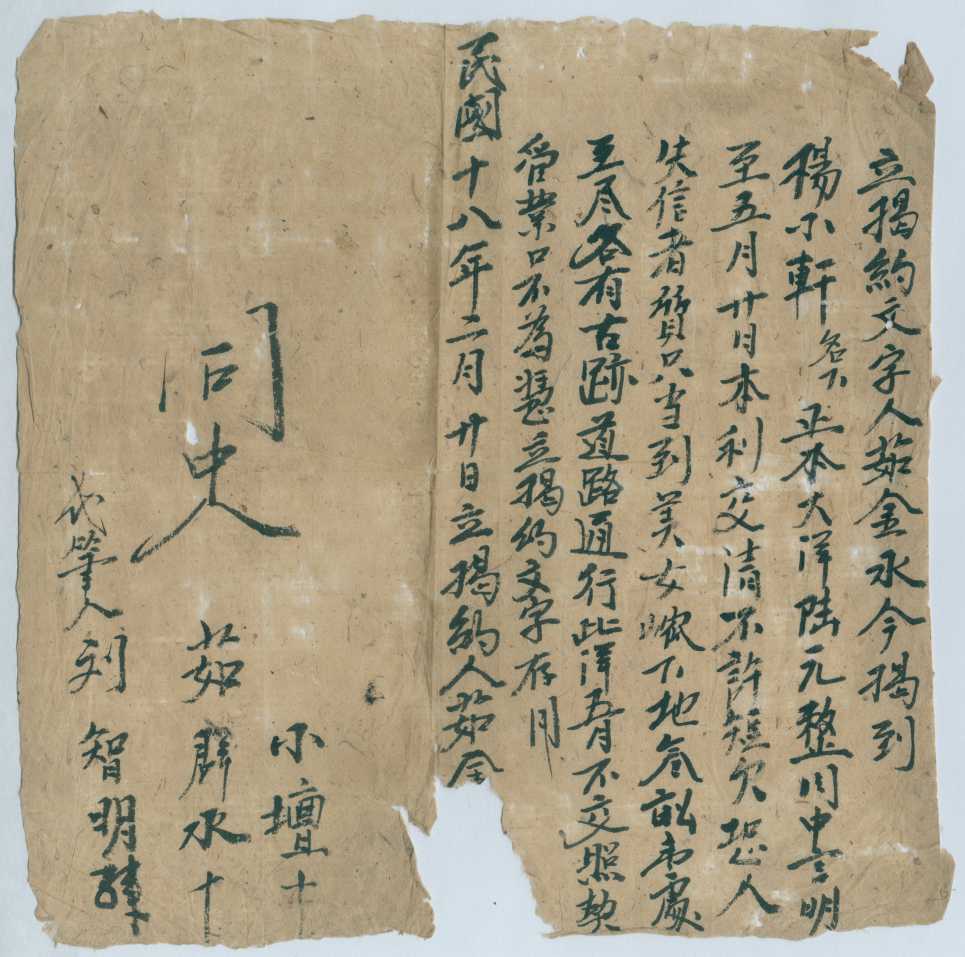 立揭約文字人茹金水今揭到
楊小軒名下正本大洋陸元整同中言明
至五月廿日本利交清不許短欠恐人
失信者質只当到美女下地叁畝東處
王尽各有古跡道路通行此洋五月不交照契
管業口不為憑立揭約文字存用
民國十八年二月廿日立揭約人茹金
同中人
小壇十
茹群水十
代筆人刘智明